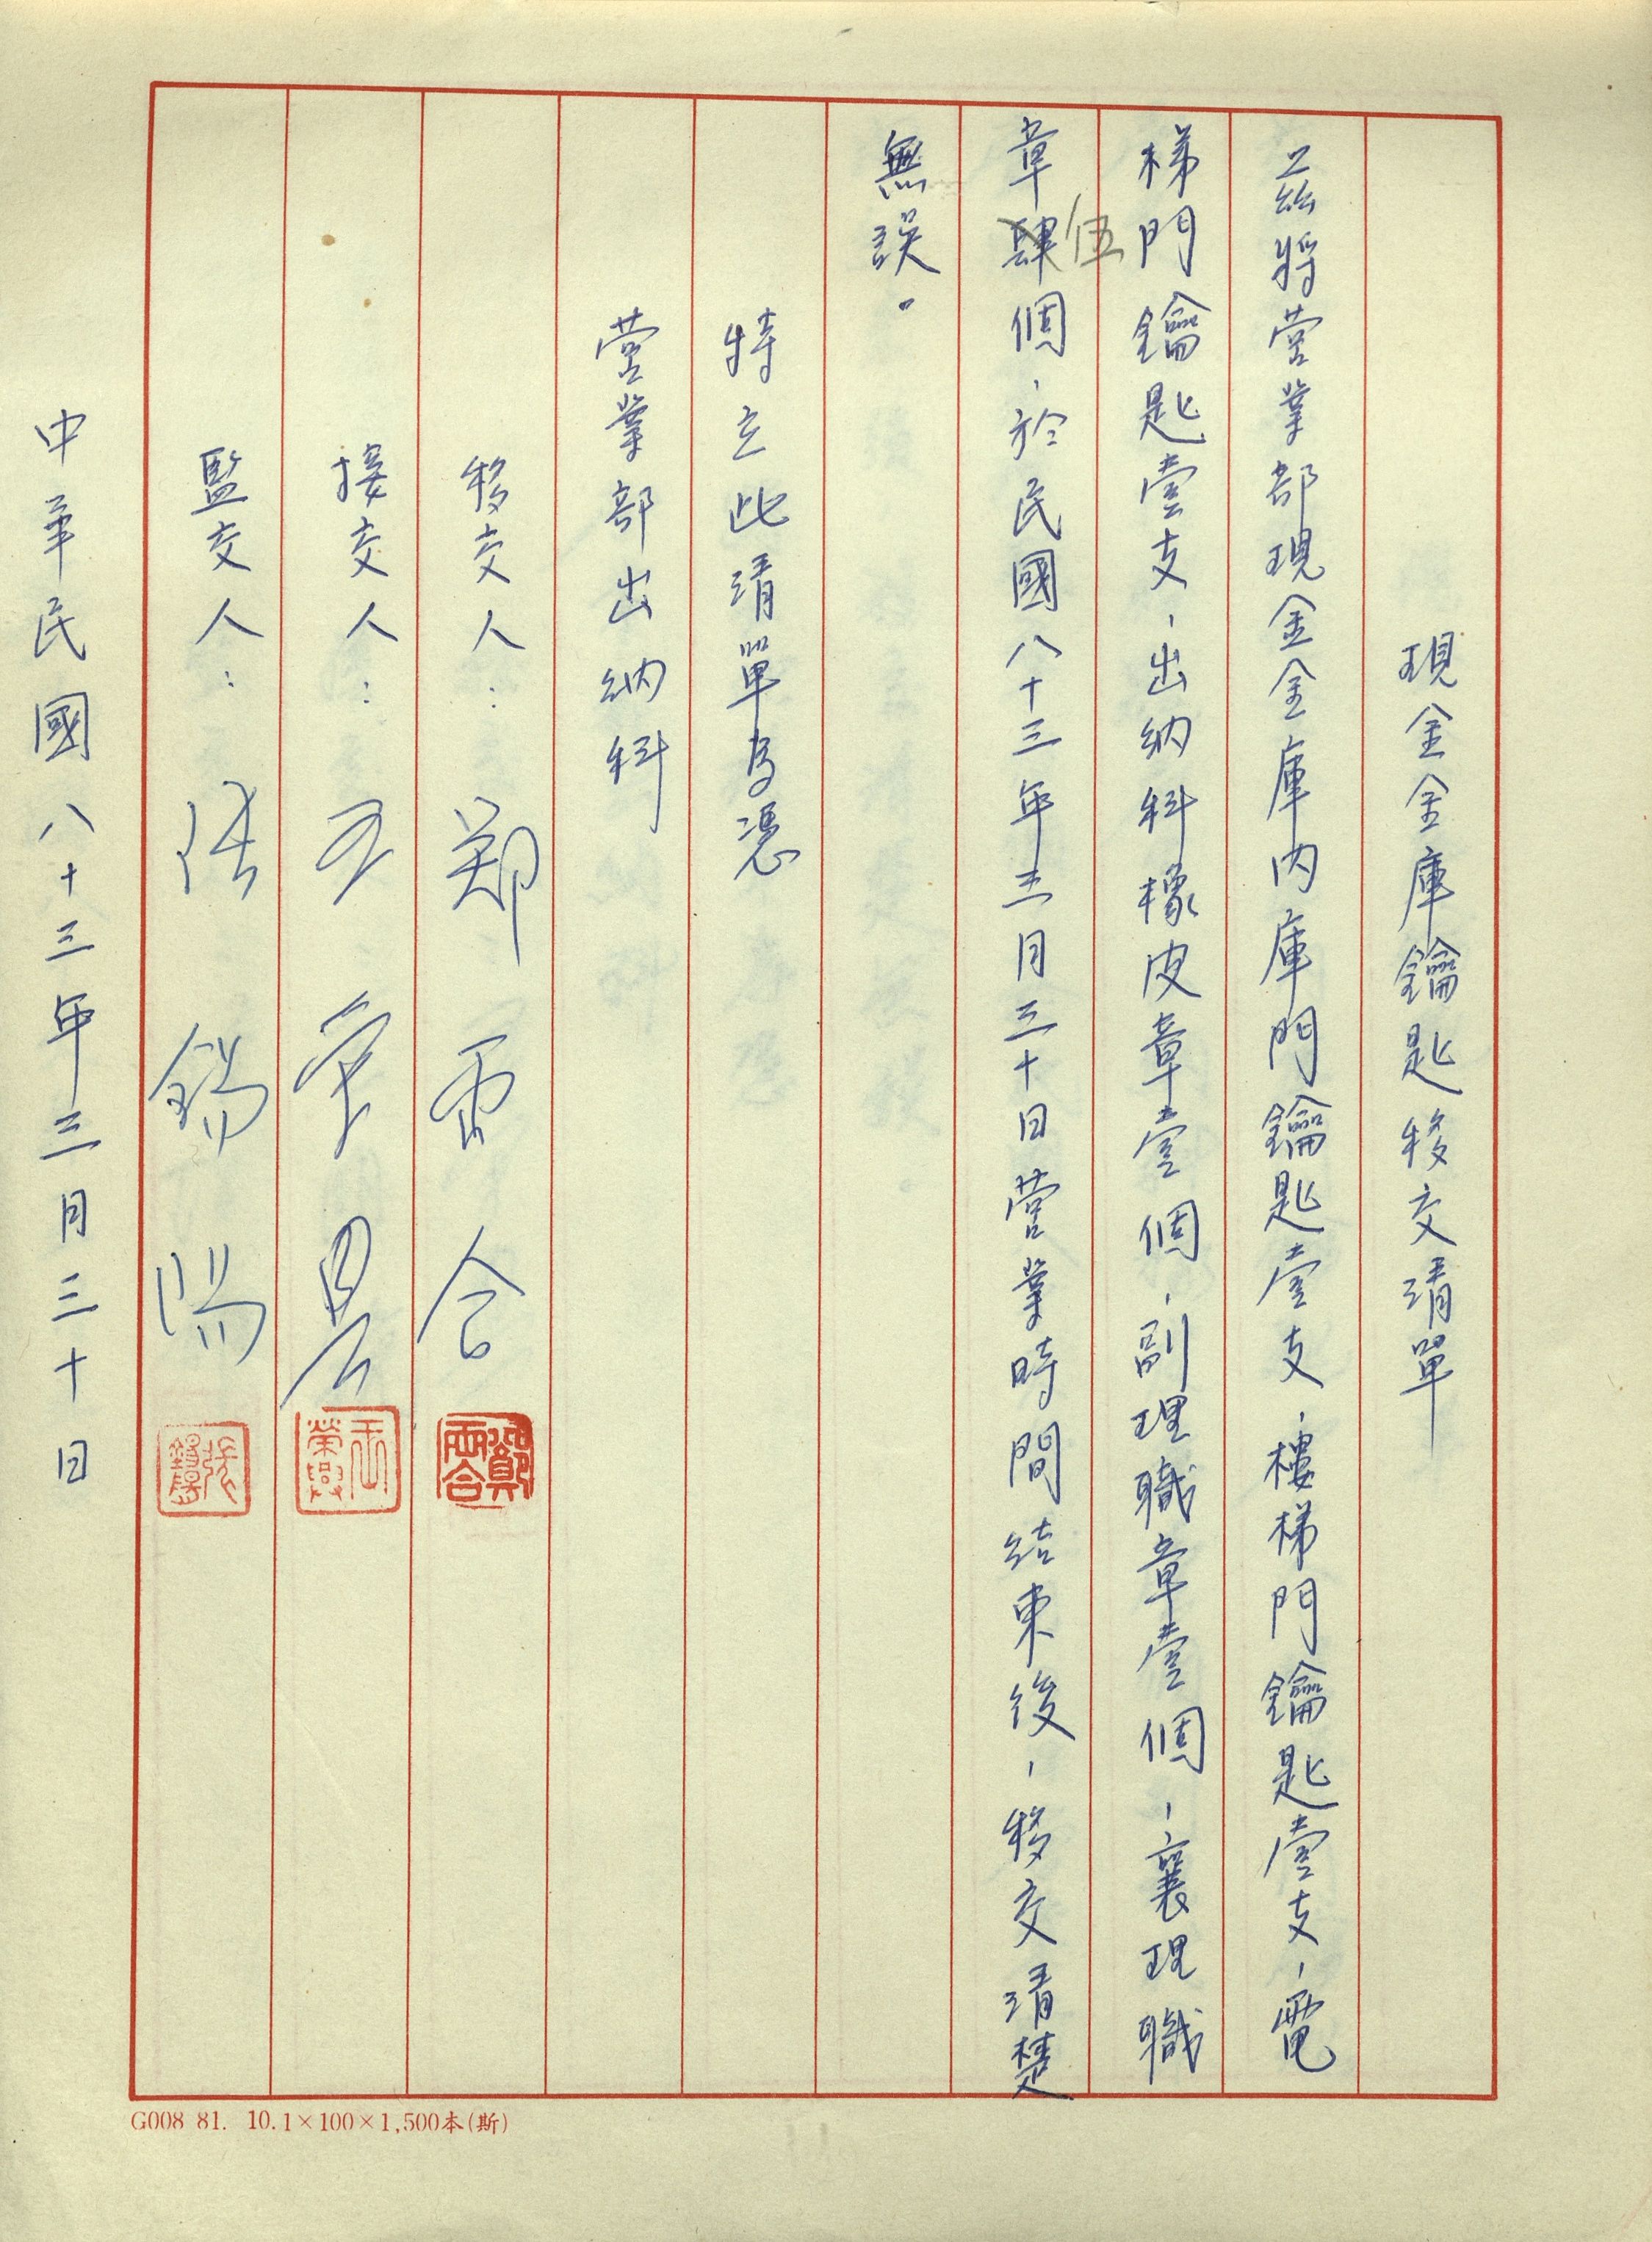 現金金庫鑰匙移交清單
茲將營業部現金金庫內庫門鑰匙壹支，樓梯門鑰匙壹支，電
梯門鑰匙壹支，出納科橡皮章壹個，副理職章壹個，襄理職
章肆個，於民國八十三年三月三十日營業時間結束後，移交清楚
伍
無誤。
特立此清單為憑
營業部出納科
移交人：鄭雨合
鄭雨合
接交人：王榮
王榮
監交人：張錫陽
張錫陽
中華民國八十三年三月三十日
G008 81. 10.1×100×1,500本(斯)